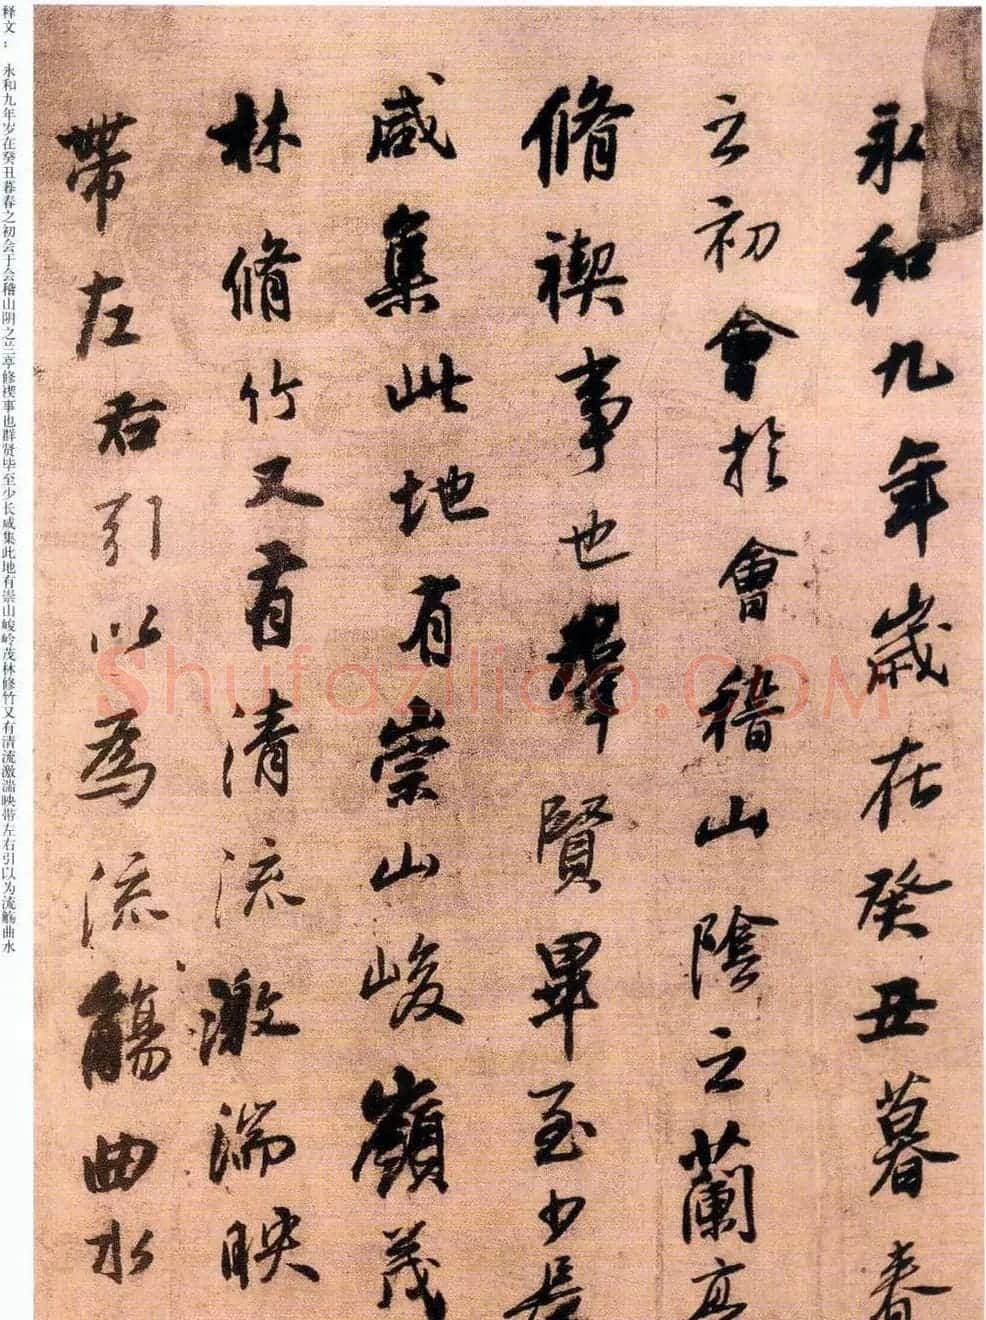 永和九年歲在癸丑暮春
之初會於會稽山陰之蘭亭
脩禊事也羣賢畢至少長
咸集此地有崇山峻嶺茂
林脩竹又有清流激湍映
帶左右引以為流觴曲水
释文：永和九年岁在癸丑暮春之初会于会稽山阴之兰亭修禊事也群贤毕至少长咸集此地有崇山峻岭茂林修竹又有清流激湍映带左右引以为流觞曲水
Shufaziliao.COM